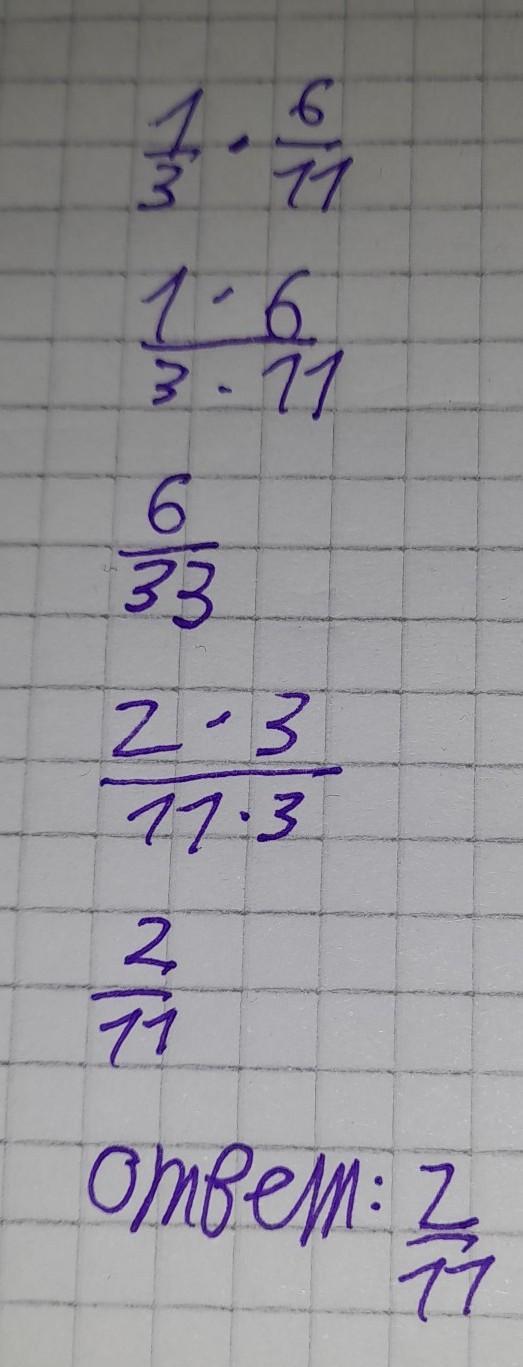 1/3 · 6/11
1 · 6 / 3 · 11
6/33
2 · 3 / 11 · 3
2/11
ответ: 2/11